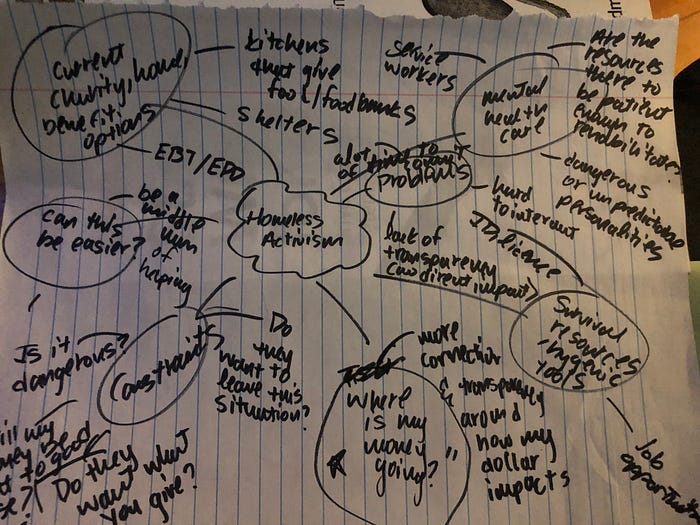 current
charity, home,
benefit
options
kitchens
that give
food/foodbanks
shelters
EBT/EDD
service
workers
mental
health
care
Are the
resources
there to
be patient
enough to
dangerous
or unpredictable
personalities
a lot
of
problems
hard
to
Homeless
Activism
can this
be easier?
be a
middle
man
of
helping
lack of
transparency
(no direct impact)
ID, license
Survival
resources
-hygienic
tools
Job
Is it
dangerous?
Constraints
Do
they
want to
leave this
situation?
Do they
want what
you give?
to good
Where
is my
money
going?"
more
connection
& transparency
around
how my
dollar
impacts